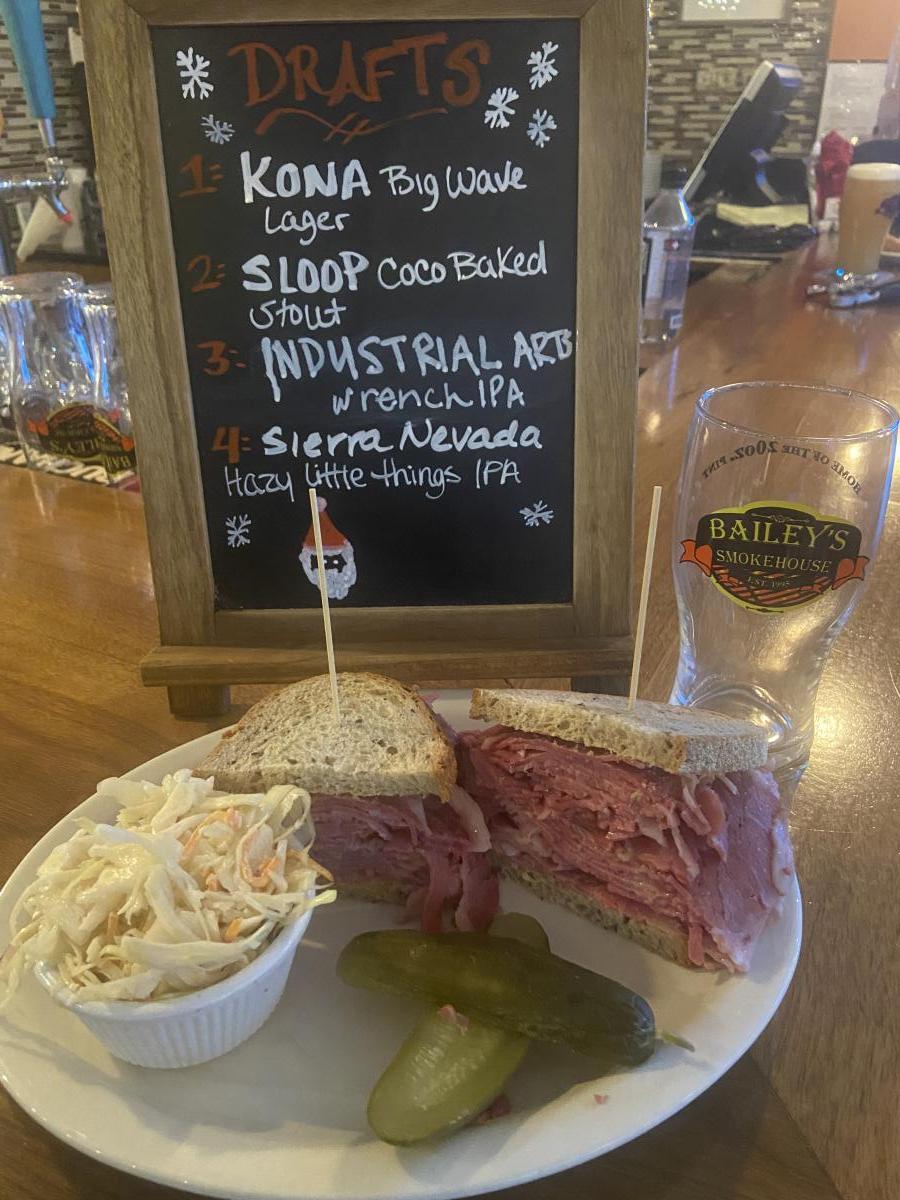 DRAFTS
1= KONA Big Wave
Lager
2= SLOOP Coco Baked
Stout
3- INDUSTRIAL ARTS
wrench IPA
4= Sierra Nevada
Hazy little things IPA
HOME OF THE 20oz. PINT
BAILEY'S
SMOKEHOUSE
EST. 1995
BAILEY'S